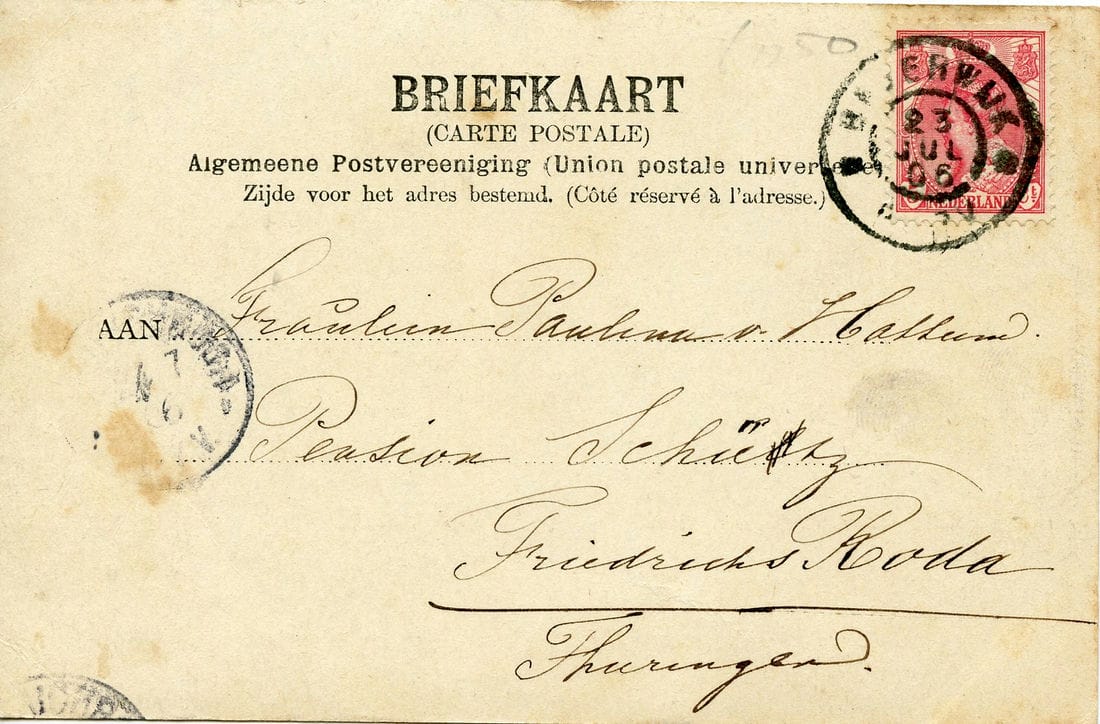 50
BRIEFKAART
(CARTE POSTALE)
Algemeene Postvereeniging (Union postale universelle)
Zijde voor het adres bestemd. (Côté réservé à l'adresse.)
23
JUL
06
NEDERLAND
AAN Fräulein Paulina v. Hattum.
Pension Schütz
FriedrichsRoda
Thuringen.